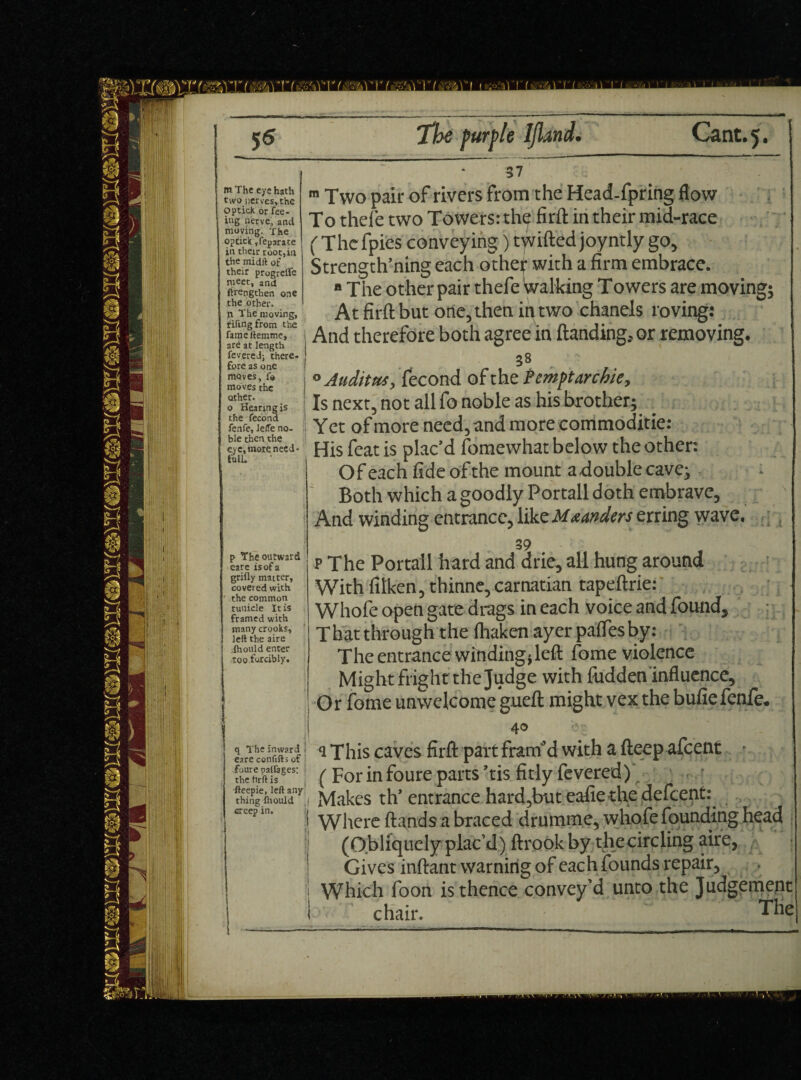 56 The purple Iſland. Cant.5.
m The eye hath
two nerves, the
Optick or ſee-
ing nerve, and
moving. The
optick, ſeparate
in their root, in
the midſt of
their progreſſe
meet, and
ſtrengthen one
the other.
n The moving,
riſing from the
ſame ſtemme,
are at length
ſevered; there-
fore as one
moves, ſo
moves the
other.
o Hearing is
the ſecond
ſenſe, leſſe no-
ble then the
eye, more need-
full.
p The outward
eare is of a
griſly matter,
covered with
the common
tunicle It is
framed with
many crooks,
left the aire
ſhould enter
too forcibly.
q The inward
eare conſiſts of
foure paſſages:
the firſt is
ſteepie, leſt any
thing ſhould
creep in.
37
m Two pair of rivers from the Head-ſpring flow
To theſe two Towers: the firſt in their mid-race
(The ſpies conveying) twiſted joyntly go,
Strength'ning each other with a firm embrace.
n The other pair theſe walking Towers are moving;
At firſt but one, then in two chanels roving:
And therefore both agree in ſtanding, or removing.
38
o Auditus, ſecond of the Pemptarchie,
Is next, not all ſo noble as his brother;
Yet of more need, and more commoditie:
His ſeat is plac'd ſomewhat below the other:
Of each ſide of the mount a double cave;
Both which a goodly Portall doth embrave,
And winding entrance, like Mæanders erring wave.
39
p The Portall hard and drie, all hung around
With ſilken, thinne, carnatian tapeſtrie:
Whoſe open gate drags in each voice and ſound,
That through the ſhaken ayer paſſes by:
The entrance winding, left ſome violence
Might fright the Judge with ſudden influence,
Or ſome unwelcome gueſt might vex the buſie ſenſe.
40
q This caves firſt part fram'd with a ſteep aſcent
(For in foure parts 'tis fitly ſevered)
Makes th' entrance hard, but eaſie the deſcent:
Where ſtands a braced drumme, whoſe ſounding head
(Obliquely plac'd) ſtrook by the circling aire,
Gives inſtant warning of each ſounds repair,
Which ſoon is thence convey'd unto the Judgement
chair. The